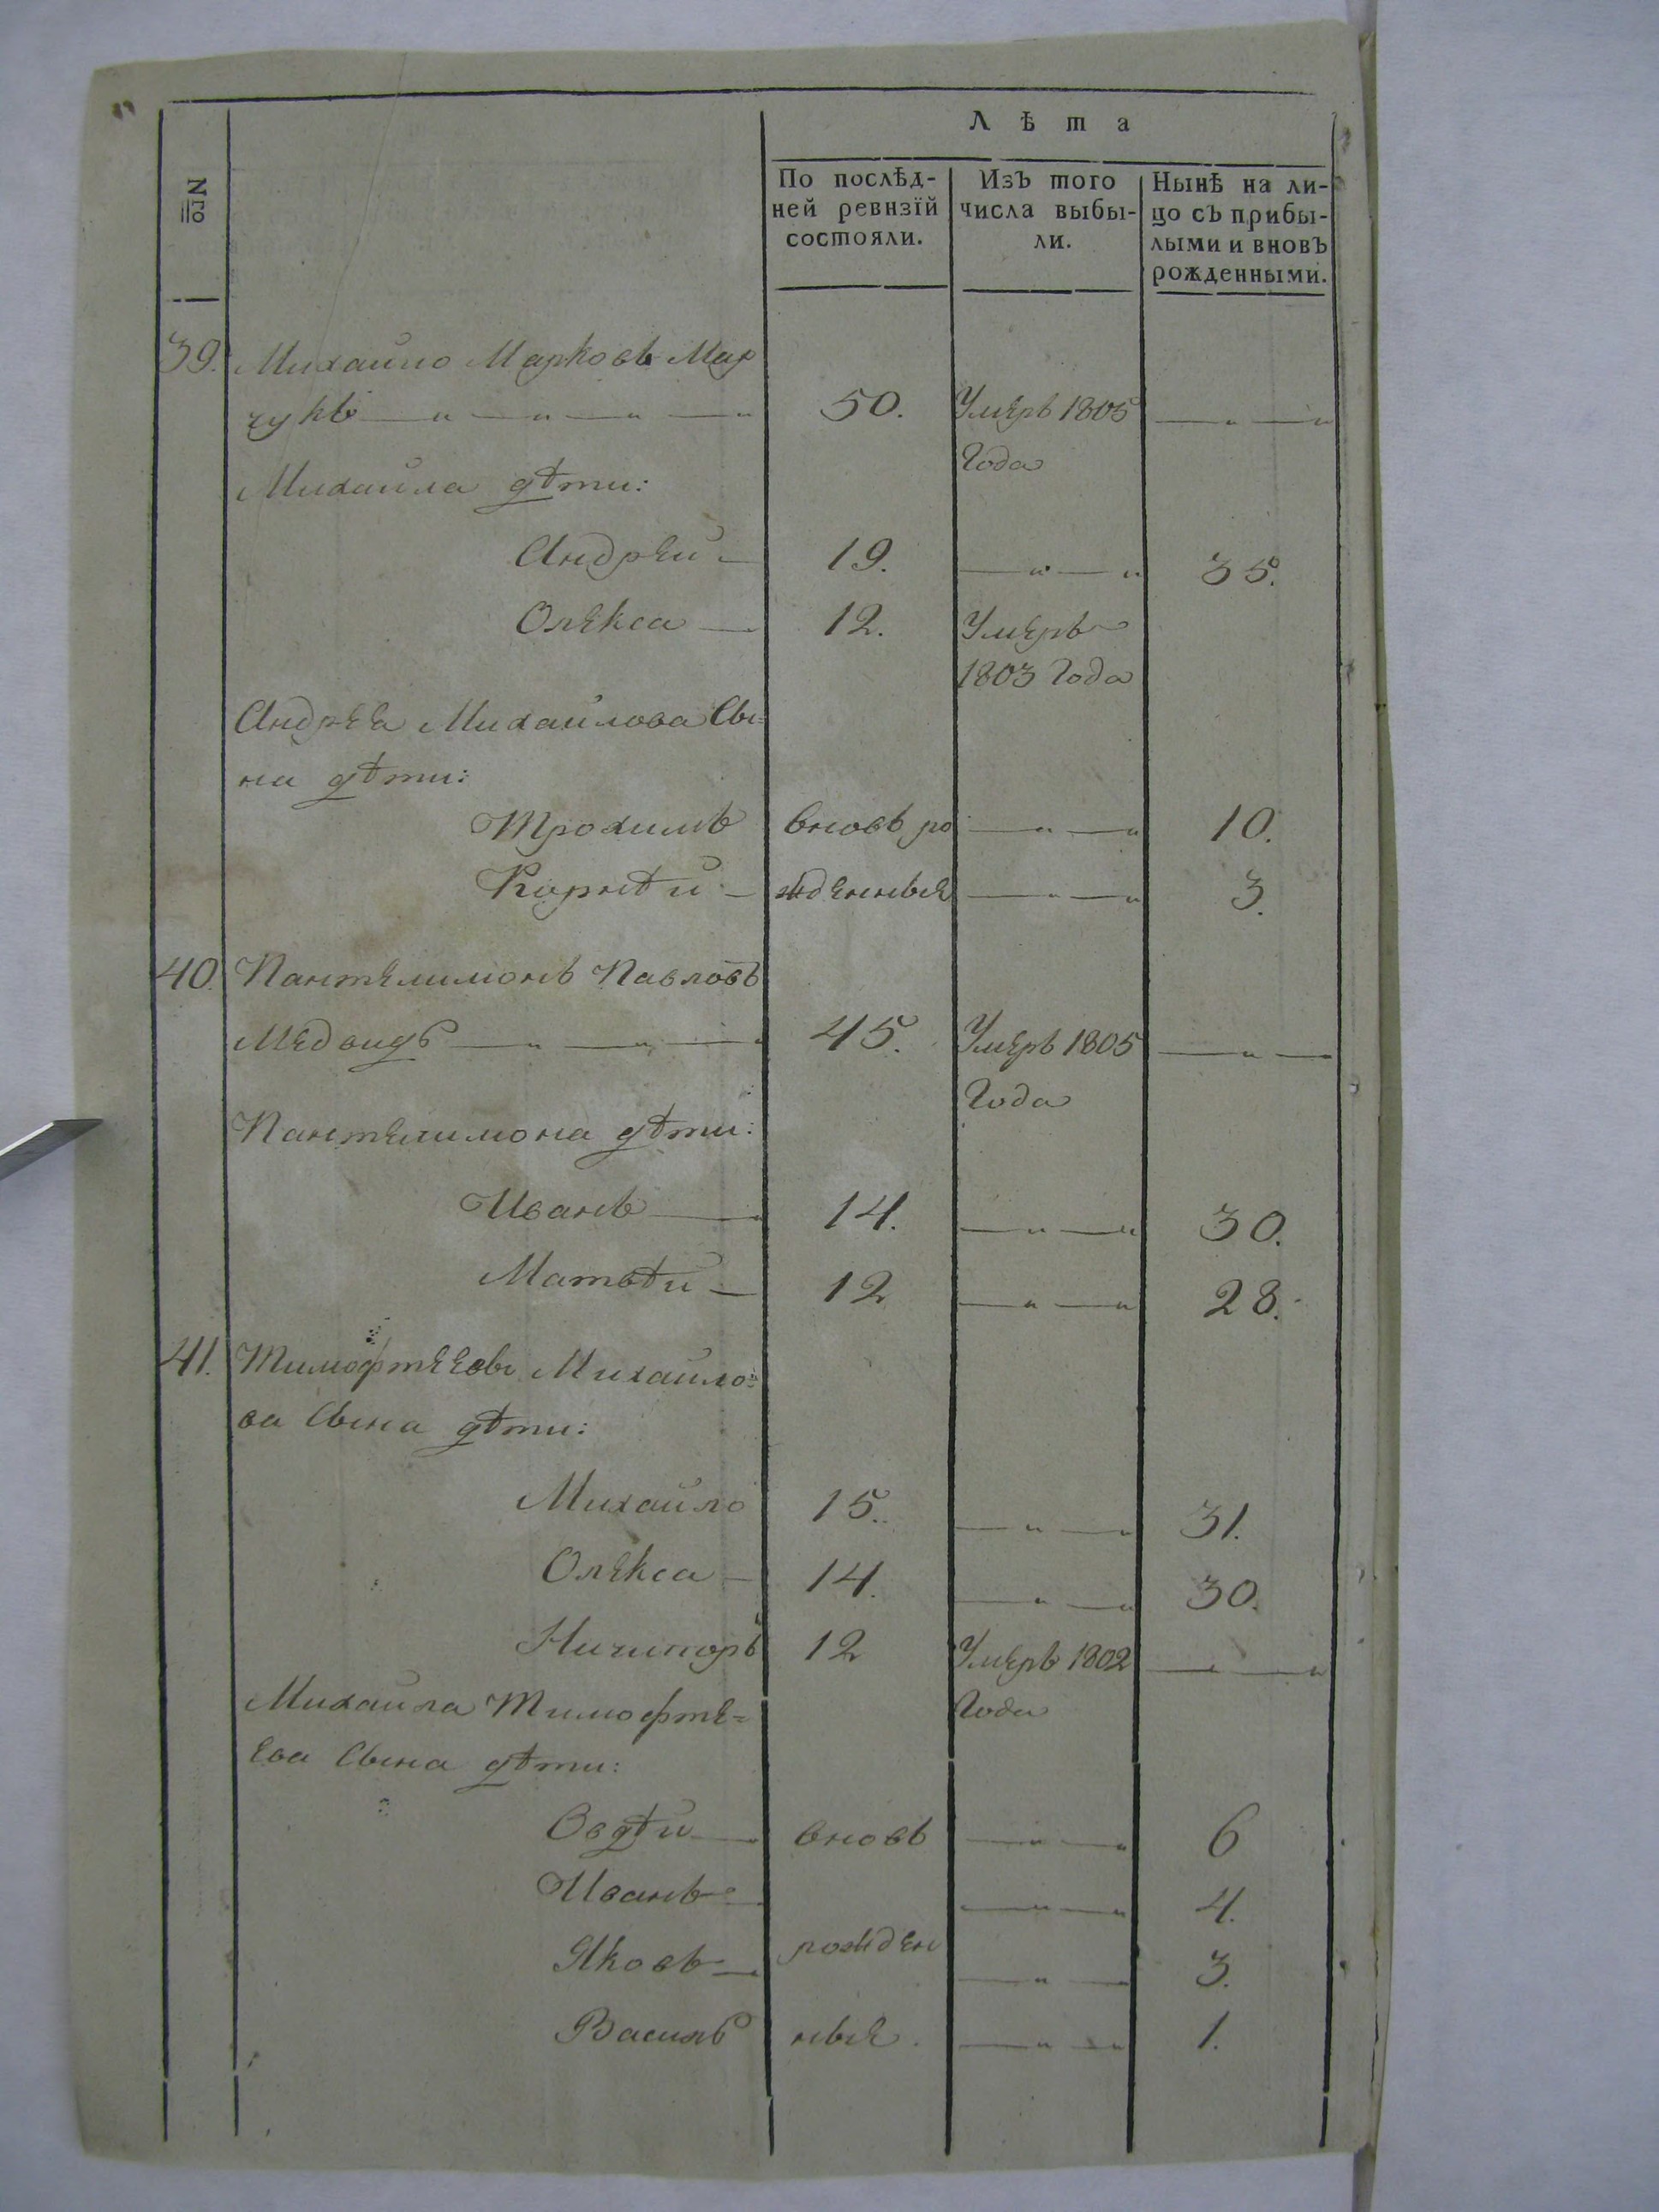 Лѣта
Nro
По послѣд-
ней ревизїй
состояли.
Изъ того
числа выбы-
ли.
Нынѣ на ли-
цо съ прибы-
лыми и вновь
рожденными.
39. Михайло Марковъ Мар
чукъ 50. Умеръ 1805
Года
Михайла дѣти:
Андрей 19. 35.
Олекса 12. Умеръ
1803 Года
Андрея Михайлова Сы-
на дѣти:
Трохимъ вновь ро 10.
Корнѣй жденные 3.
40. Пантелимонъ Павловъ
Медвидь 45. Умеръ 1805
Года
Пантелимона дѣти:
Иванъ 14. 30.
Матвѣй 12 28.
41. Михайло-
ва Сына дѣти:
Михайло 15. 31.
Олекса 14. 30.
Ничипоръ 12 Умеръ 1802
Года
Михайла Тимофте-
ева Сына дѣти:
Овдѣй вновь 6
Иванъ 4.
Яковъ рожден 3.
Василь ные. 1.